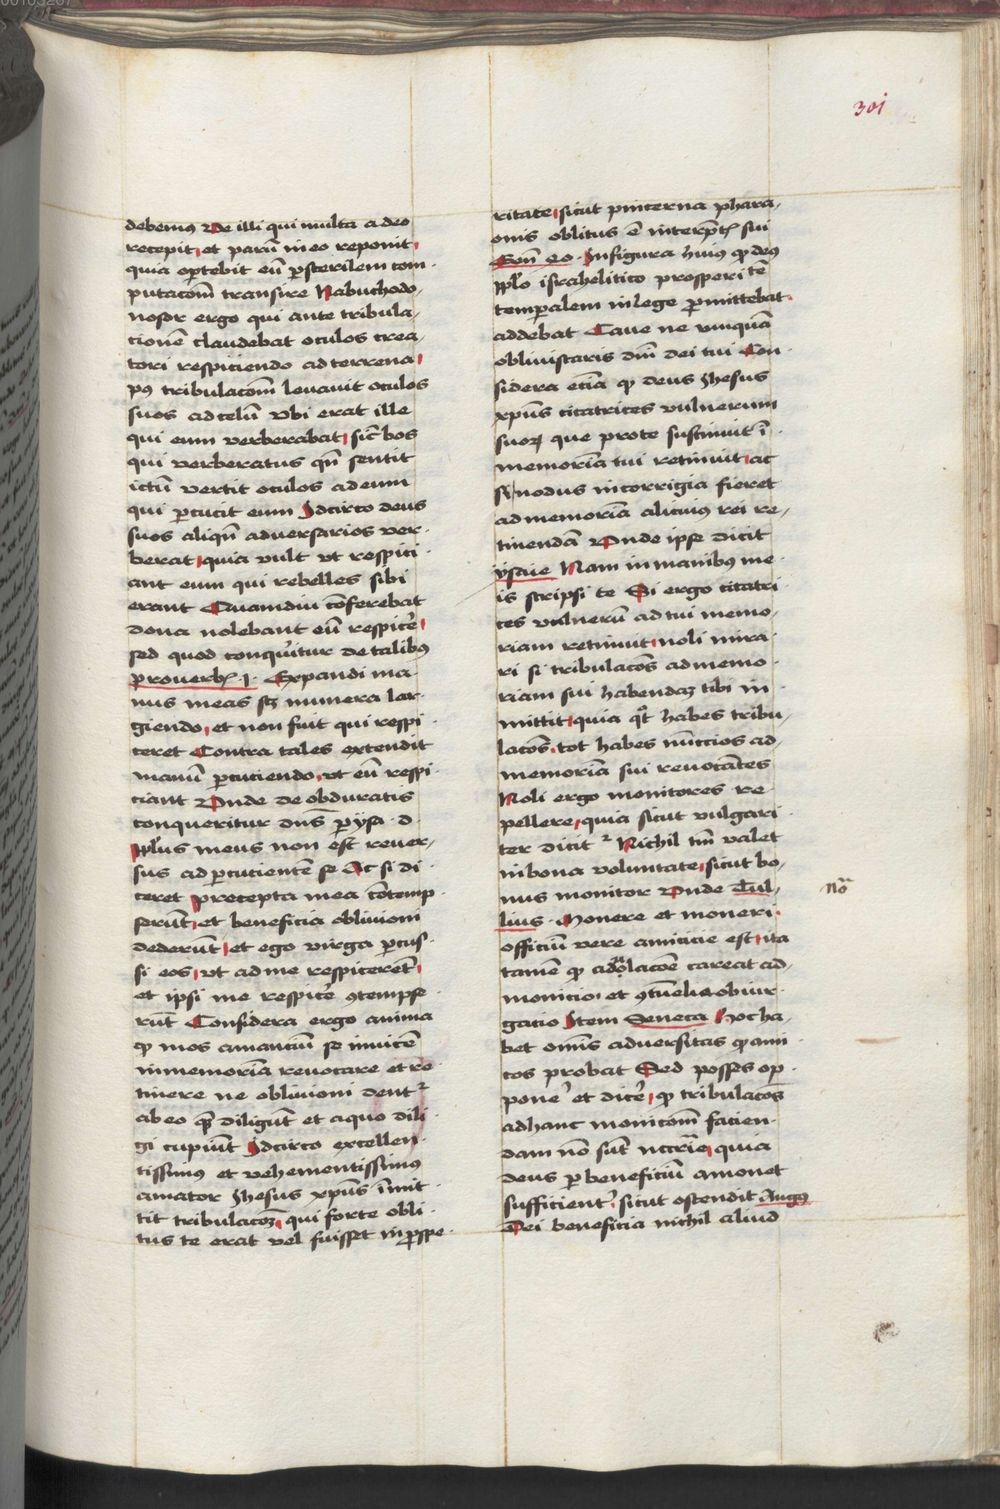 301
debemus Ve illi qui multa a deo
recepit et parū in eo reponit
quia oportebit eū per sterilem com
putacōm transire Nabuchodo
nosor ergo qui ante tribula
cionē claudebat oculos crea
tori respiciendo ad terrena
post tribulacōm levavit oculos
suos ad celū ubi erat ille
qui eum verberabat sicut bos
qui verberatus qn̄ sentit
ictū vertit oculos ad eum
qui percucit eum Idcirco deus
suos aliqn̄ adversarios ver
berat quia vult ut respici
ant eum qui rebelles sibi
erant Quamdiu cōferebat
dona nolebant eū respicere
sed quod conqueritur de talibus
proverb 1 Expandi ma
nus meas scz munera lar
giendo et non fuit qui respi
ceret Contra tales extendit
manū percuciendo ut eū respi
ciant Unde de obduratis
conqueritur dn̄s per ysa
pplus meus non est rever
sus ad percucientē se Ac si di
ceret precepta mea cōtemp
serūt et beneficia oblivioni
dederūt et ego virga percus
si eos ut ad me respicerēt
et ipsi me respicere contempse
rūt Considera ergo anima
quod mos amanciū se invicē
in memoriā revocare et re
tinere ne oblivioni dentur
ab eo quem diligūt et a quo dili
gi cupiūt Idcirco excellen
tissimus et vehementissimus
amator Jhesus xpūs īmit
tit tribulacōz qui forte obli
tus te erat vel fuisset in prospe
ritate sicut pincerna phara
onis oblitus ē interpretis sui
Gen̄ 40 In figura huius quod deus
pplo israhelitico prosperitatē
temporalem in lege permittebat
addebat Cave ne unquā
obliviscaris dn̄i dei tui Con
sidera eciā quod deus Jhesus
xpūs cicatrices vulnerum
suorum que pro te sustinuit ī
memoriā tui retinuit ac
si nodus in corrigia fieret
ad memoriā alicuius rei re
tinendā Unde ipse dicit
ysaie Nam in manibus me
is scripsi te Si ergo cicatri
ces vulnerū ad tui memo
riam retinuit noli mira
ri si tribulacōes ad memo
riam sui habendaz tibi in
mittit quia quot habes tribu
lacōes tot habes nūccios ad
memoriā sui revocātes
Noli ergo monitores re
pellere quia sicut vulgari
ter dicitur Nichil tm̄ valet
in bona voluntate sicut bo
nus monitor Unde Tul
lius Monere et moneri
officiū vere amicicie est ita
tamē quod adulacōe careat ad
monicio et contumelia obiur
gatio Item Seneca Hoc ha
bet omnis adversitas quod ami
cos probat Sed posses op
ponere et dicere quod tribulacōes
ad hanc monicōm facien
dam nō sūt necessarie quia
deus per beneficiū amonet
sufficienter sicut ostendit Augus
Dei beneficia nichil aliud